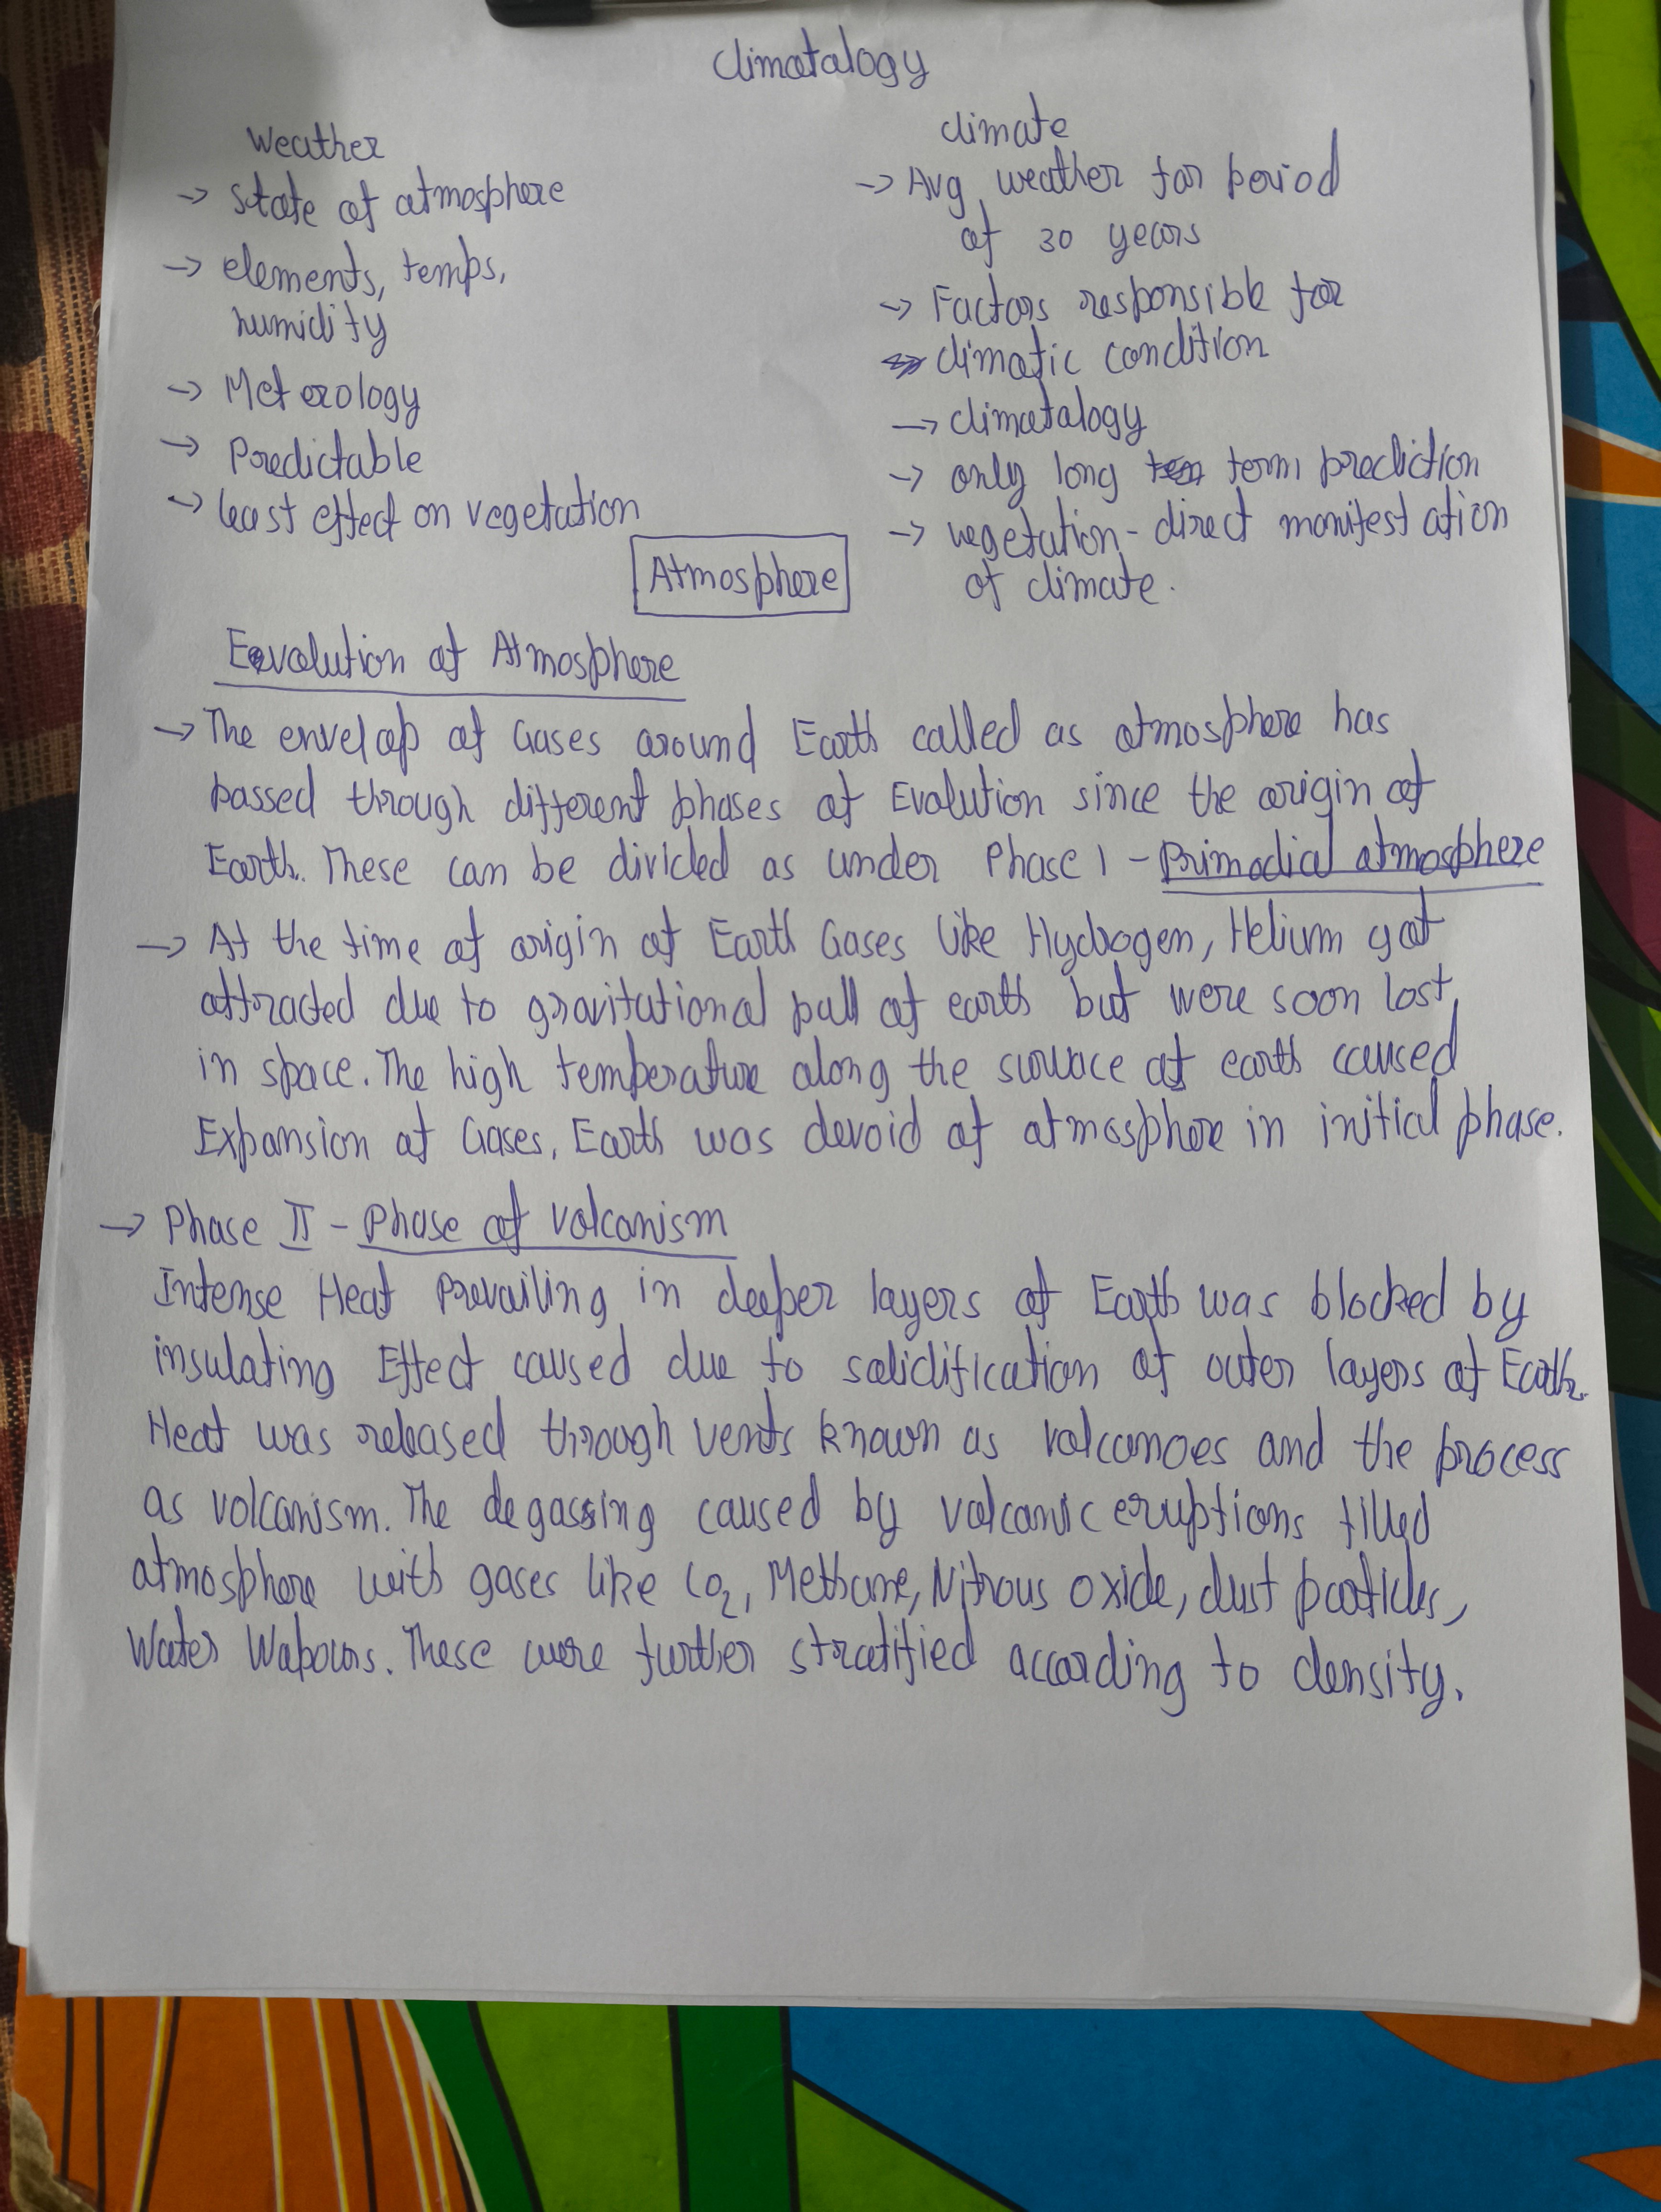 Climatalogy
Weather
→ State of atmosphere
→ elements, temps,
humidity
→ Meterology
→ Predictable
→ least effect on vegetation
Climate
→ Avg weather for period
of 30 years
→ Factors responsible for
climatic condition
→ climatalogy
→ only long term prediction
→ vegetation - direct manifestation
of climate.
Atmosphere
Evolution of Atmosphere
→ The envelop of Gases around Earth called as atmosphere has
passed through different phases of Evolution since the origin of
Earth. These can be divided as under Phase 1 - Primodial atmosphere
→ At the time of origin of Earth Gases like Hydrogen, Helium got
attracted due to gravitational pull of earth but were soon lost
in space. The high temperature along the surface of earth caused
Expansion of Gases. Earth was devoid of atmosphere in initial phase.
→ Phase II - Phase of Volcanism
Intense Heat Prevailing in deeper layers of Earth was blocked by
insulating Effect caused due to solidification of outer layers of Earth.
Heat was released through vents known as volcanoes and the process
as volcanism. The degassing caused by volcanic eruptions filled
atmosphere with gases like CO2, Methane, Nitrous oxide, dust particles,
Water Wapours. These were further stratified according to density.